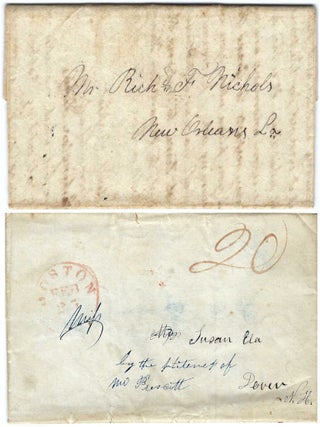 Mr Richd F Nichols
New Orleans La
20
BOSTON
FEB
Ship
Mrs Susan Ela
by the politenes of
Mr Prescott Dover
N. H.